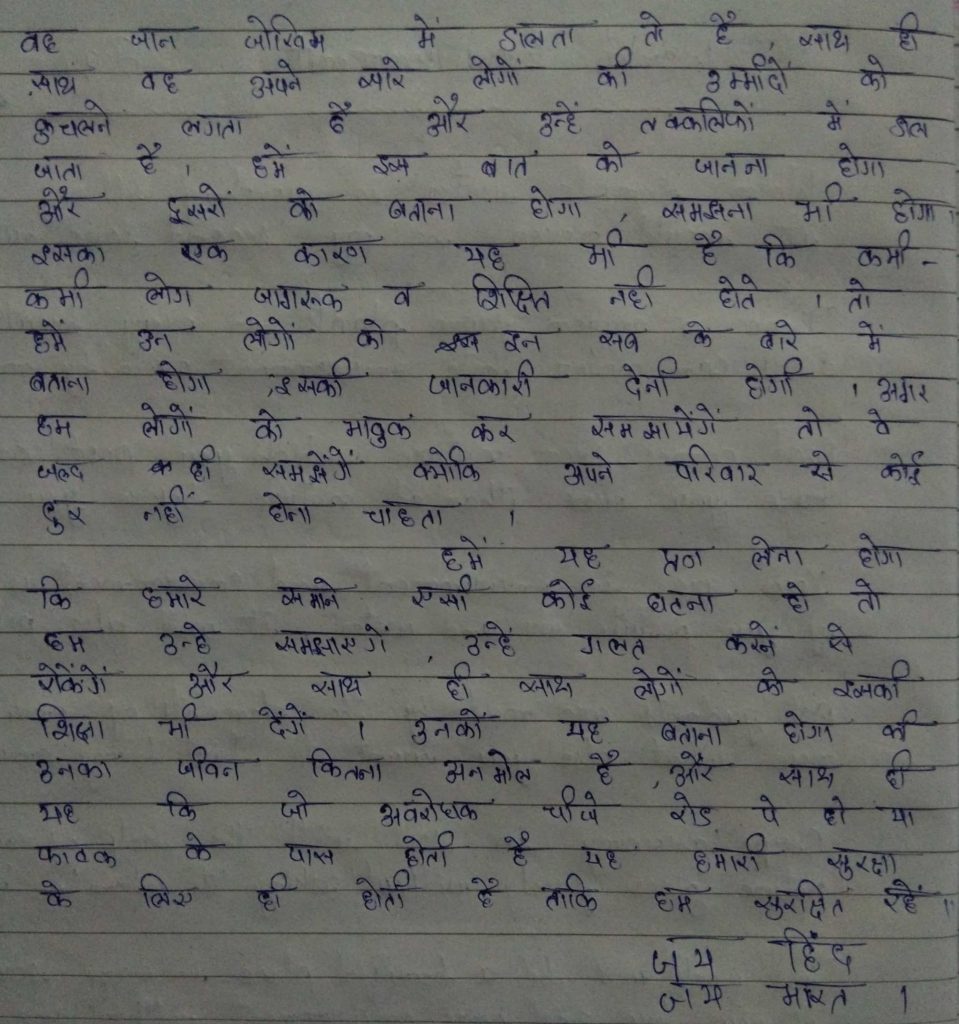 वह जान जोखिम में डालता तो है, साथ ही
साथ वह अपने सारे लोगों की उम्मीदों को
कुचलने लगता है और उन्हें तक्कलिफों में डाल
जाता है । हमें इस बात को जानना होगा
और दूसरों को बताना होगा, समझना भी होगा ।
इसका एक कारण यह भी है कि कभी -
कभी लोग जागरूक व शिक्षित नही होते । तो
हमें उन लोगों को इन सब के बारे में
बताना होगा, इसकी जानकारी देनी होगी । अगर
हम लोगों को भावुक कर समझायेंगें तो वे
जल्द ही समझेंगें क्योकि अपने परिवार से कोई
दुर नहीं होना चाहता ।
हमें यह प्रण लेना होगा
कि हमारे समाने एसी कोई घटना हो तो
हम उन्हे समझाएगें, उन्हें गलत करने से
रोकेंगें और साथ ही साथ लोगों को इसकी
शिक्षा भी देंगें । उनकों यह बताना होगा की
उनका जीवन कितना अनमोल है, और साथ ही
यह कि जो अवरोधक चीजे रोड पे हो या
फाटक के पास होती है यह हमारी सुरक्षा
के लिए ही होती है ताकि हम सुरक्षित रहें ।।
जय हिंद
जय भारत ।